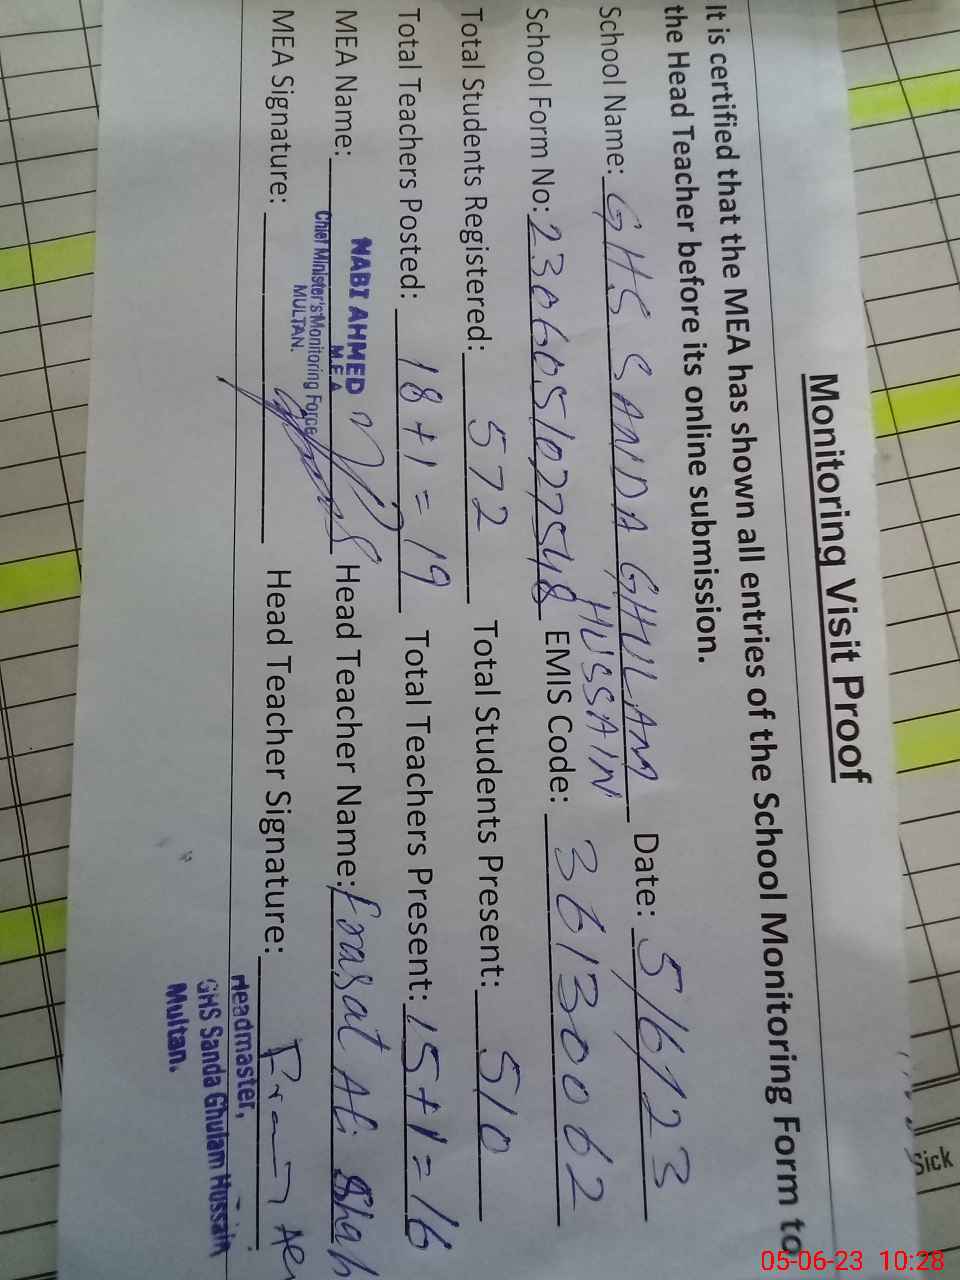 Monitoring Visit Proof
It is certified that the MEA has shown all entries of the School Monitoring Form to
the Head Teacher before its online submission.
School Name: GHS SANDA GHULAM HUSSAIN Date: 5/6/23
School Form No: 2306051027548 EMIS Code: 36130062
Total Students Registered: 572 Total Students Present: 510
Total Teachers Posted: 18+1=19 Total Teachers Present: 15+1=16
MEA Name: NABI AHMED Head Teacher Name: Frasat Ali Shah
M.E.A
Chief Minister's Monitoring Force
MULTAN.
MEA Signature: Head Teacher Signature:
Headmaster,
GHS Sanda Ghulam Hussain
Multan.
Sick
05-06-23 10:28